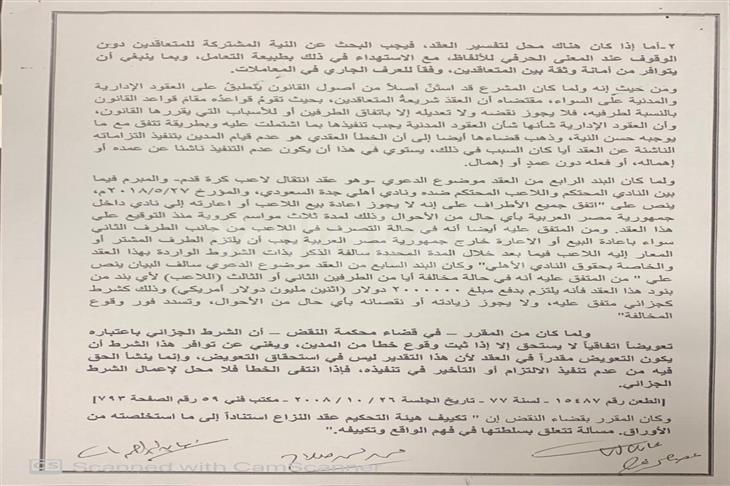 ٢-أما إذا كان هناك محل لتفسير العقد، فيجب البحث عن النية المشتركة للمتعاقدين دون
الوقوف عند المعنى الحرفي للألفاظ، مع الاستهداء في ذلك بطبيعة التعامل، وبما ينبغي أن
يتوافر من أمانة وثقة بين المتعاقدين، وفقاً للعرف الجاري في المعاملات.
ومن حيث إنه ولما كان المشرع قد استن أصلاً من أصول القانون يتطبق على العقود الإدارية
والمدنية على السواء، مقتضاه أن العقد شريعة المتعاقدين، بحيث تقوم قواعده مقام قواعد القانون
بالنسبة لطرفيه، فلا يجوز نقضه ولا تعديله إلا باتفاق الطرفين أو للأسباب التي يقررها القانون،
وأن العقود الإدارية شأنها شأن العقود المدنية يجب تنفيذها بما اشتملت عليه وبطريقة تتفق مع ما
يوجبه حسن النية، وذهب قضاءها أيضا إلى أن الخطأ العقدي، هو عدم قيام المدين بتنفيذ التزاماته
الناشئة عن العقد أيا كان السبب في ذلك، يستوي في هذا أن يكون عدم التنفيذ ناشنا عن عمده أو
إهماله، أو فعله دون عمدٍ أو إهمال.
ولما كان البند الرابع من العقد موضوع الدعوي -وهو عقد انتقال لاعب كرة قدم- والمبرم فيما
بين النادي المحتكم واللاعب المحتكم ضده ونادي أهلي جدة السعودي، والمؤرخ ٢٠١٨/٥/٢٧م،
ينص على "اتفق جميع الأطراف على إنه لا يجوز اعادة بيع اللاعب أو اعارته إلي نادي داخل
جمهورية مصر العربية بأي حال من الأحوال وذلك لمدة ثلاث مواسم كروية منذ التوقيع علي
هذا العقد. ومن المتفق عليه أيضا أنه في حالة التصرف في اللاعب من جانب الطرف الثاني
سواء باعادة البيع أو الاعارة خارج جمهورية مصر العربية يجب أن يلتزم الطرف المشتر أو
المعار إليه اللاعب فيما بعد خلال المدة المحددة سالفة الذكر بذات الشروط الواردة بهذا العقد
والخاصة بحقوق النادي الأهلي" وكان البند السابع من العقد موضوع الدعوي سالف البيان ينص
علي " من المتفق عليه أنه في حالة مخالفة أيا من الطرفين الثاني أو الثالث (اللاعب) لأي بند من
بنود هذا العقد فأنه يلتزم بدفع مبلغ ٢٠٠٠٠٠٠ دولار (اثنين مليون دولار أمريكي) وذلك كشرط
جزائي متفق عليه، ولا يجوز زيادته أو نقصانه بأي حال من الأحوال، وتسدد فور وقوع
المخالفة"
ولما كان من المقرر – في قضاء محكمة النقض – أن الشرط الجزائي باعتباره
تعويضاً اتفاقياً لا يستحق إلا إذا ثبت وقوع خطأ من المدين، ويغني عن توافر هذا الشرط أن
يكون التعويض مقدراً في العقد لأن هذا التقدير ليس في استحقاق التعويض، وإنما ينشأ الحق
فيه من عدم تنفيذ الالتزام أو التأخير في تنفيذه، فإذا انتفى الخطأ فلا محل لإعمال الشرط
الجزائي.
[الطعن رقم ١٥٤٨٧ - لسنة ٧٧ - تاريخ الجلسة ٢٦ / ١٠ / ٢٠٠٨ - مكتب فني ٥٩ رقم الصفحة ٧٩٣]
وكان المقرر بقضاء النقض إن " تكييف هيئة التحكيم عقد النزاع استناداً إلى ما استخلصته من
الأوراق. مسألة تتعلق بسلطتها في فهم الواقع وتكييفه."
CS Scanned with CamScanner